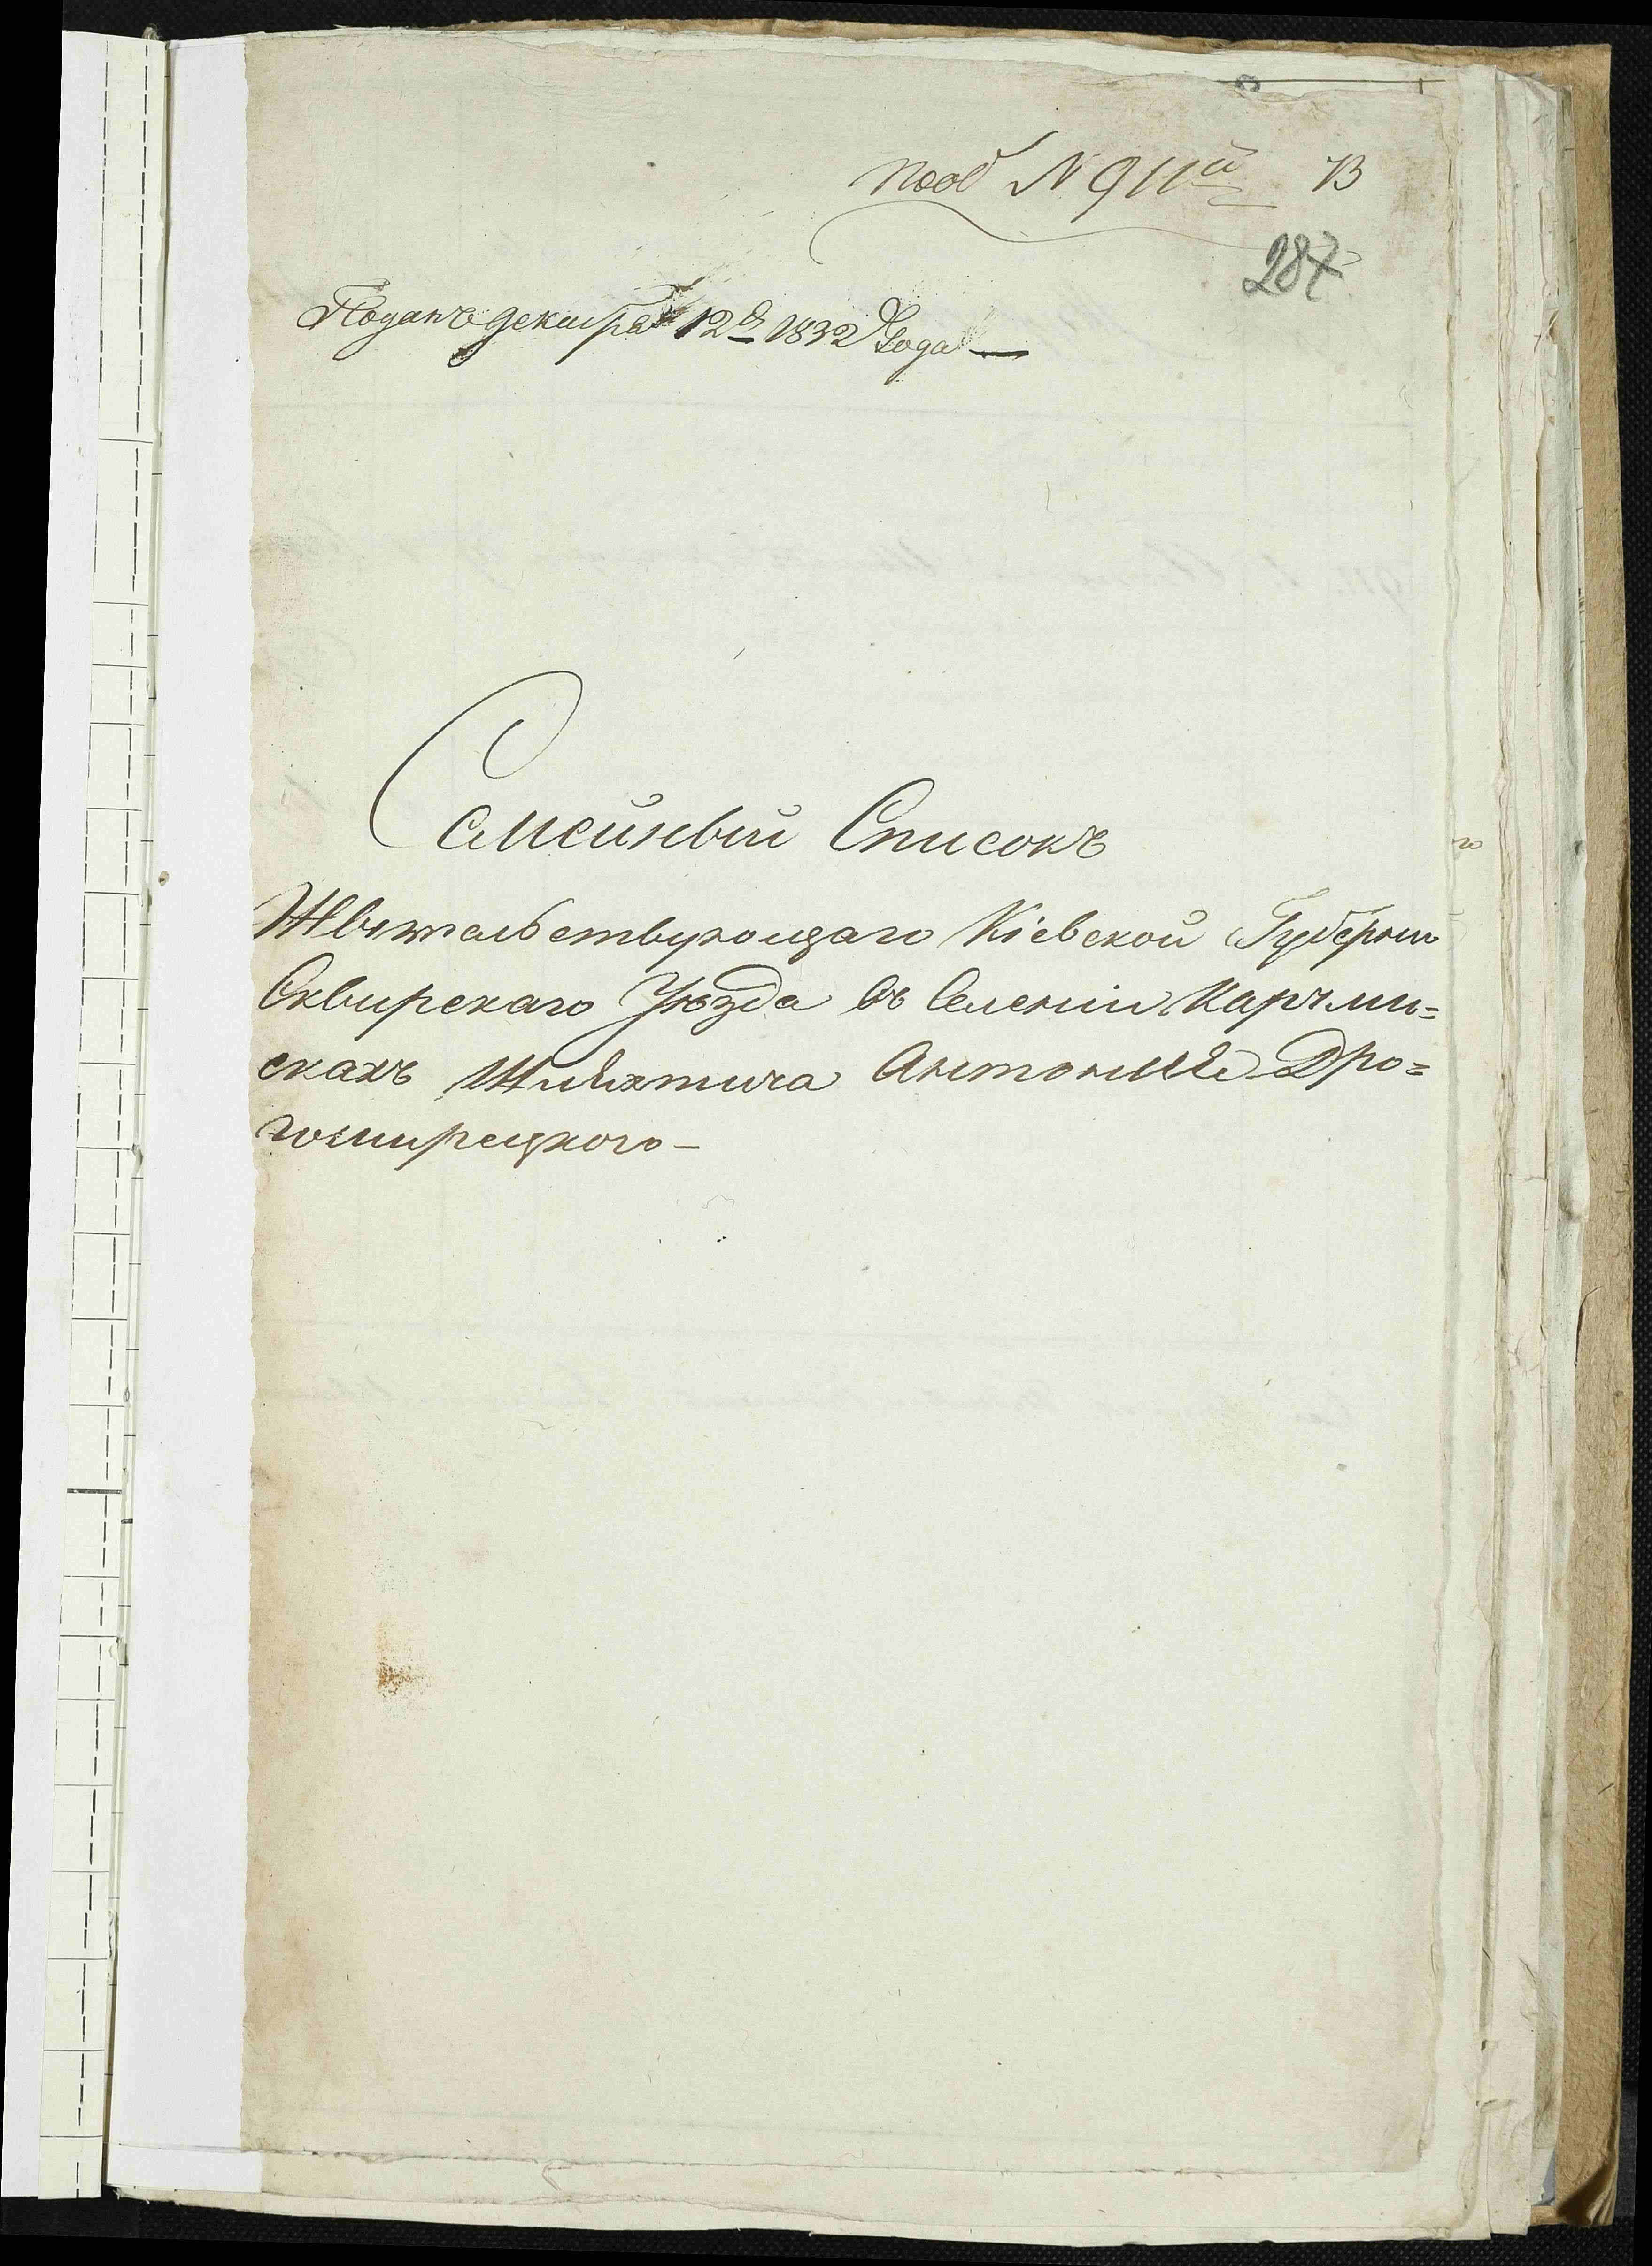 под N 911й 13
287
Поданъ декабра 12го 1832 Года —
Семейный Списокъ
Жытельствующаго Кіевской Губернии
Сквирскаго Уѣзда въ Селении Карчми=
скахъ Шляхтича Антонія Дро=
гомирецкого —